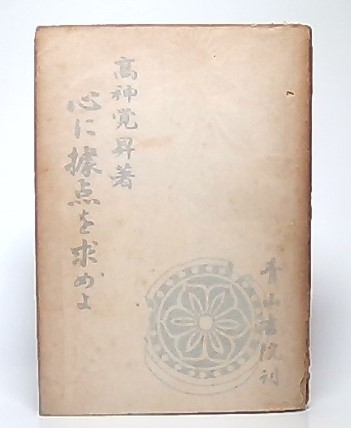 高神覚昇著
心に據点を求めよ
青山書院刊